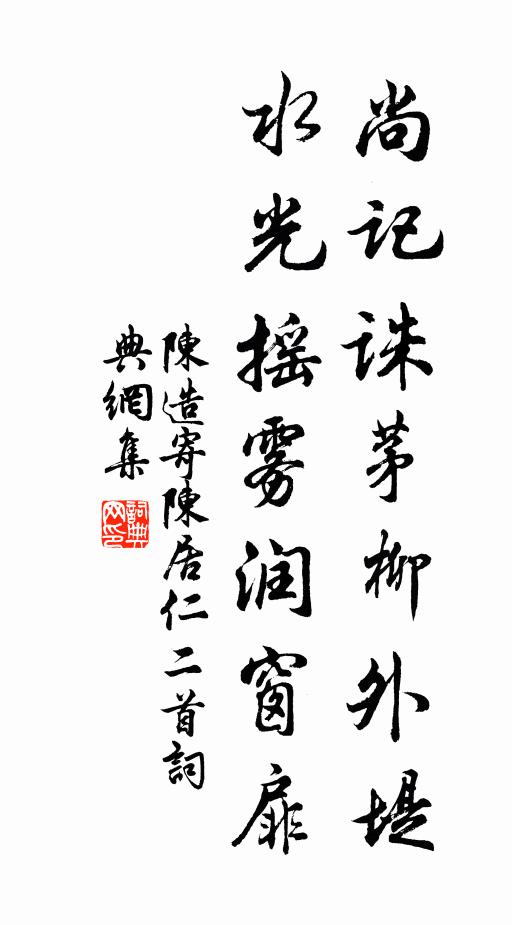 尚记诛茅柳外堤
水光摇雾润窗扉
陳造寄陳居仁二首詞
典網集
詞典網印